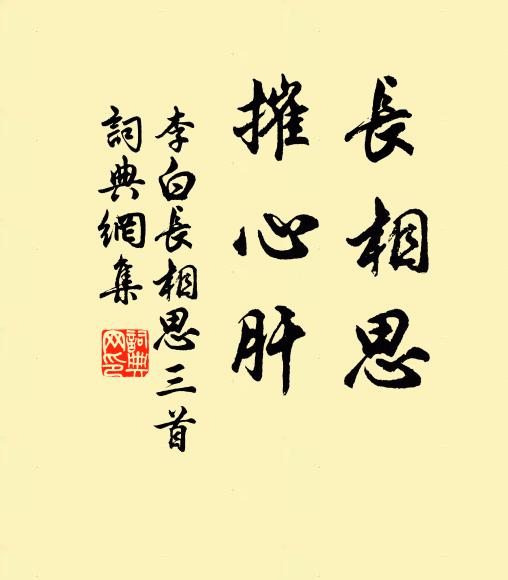 長相思
摧心肝
李白長相思三首
詞典網集
詞典
网印